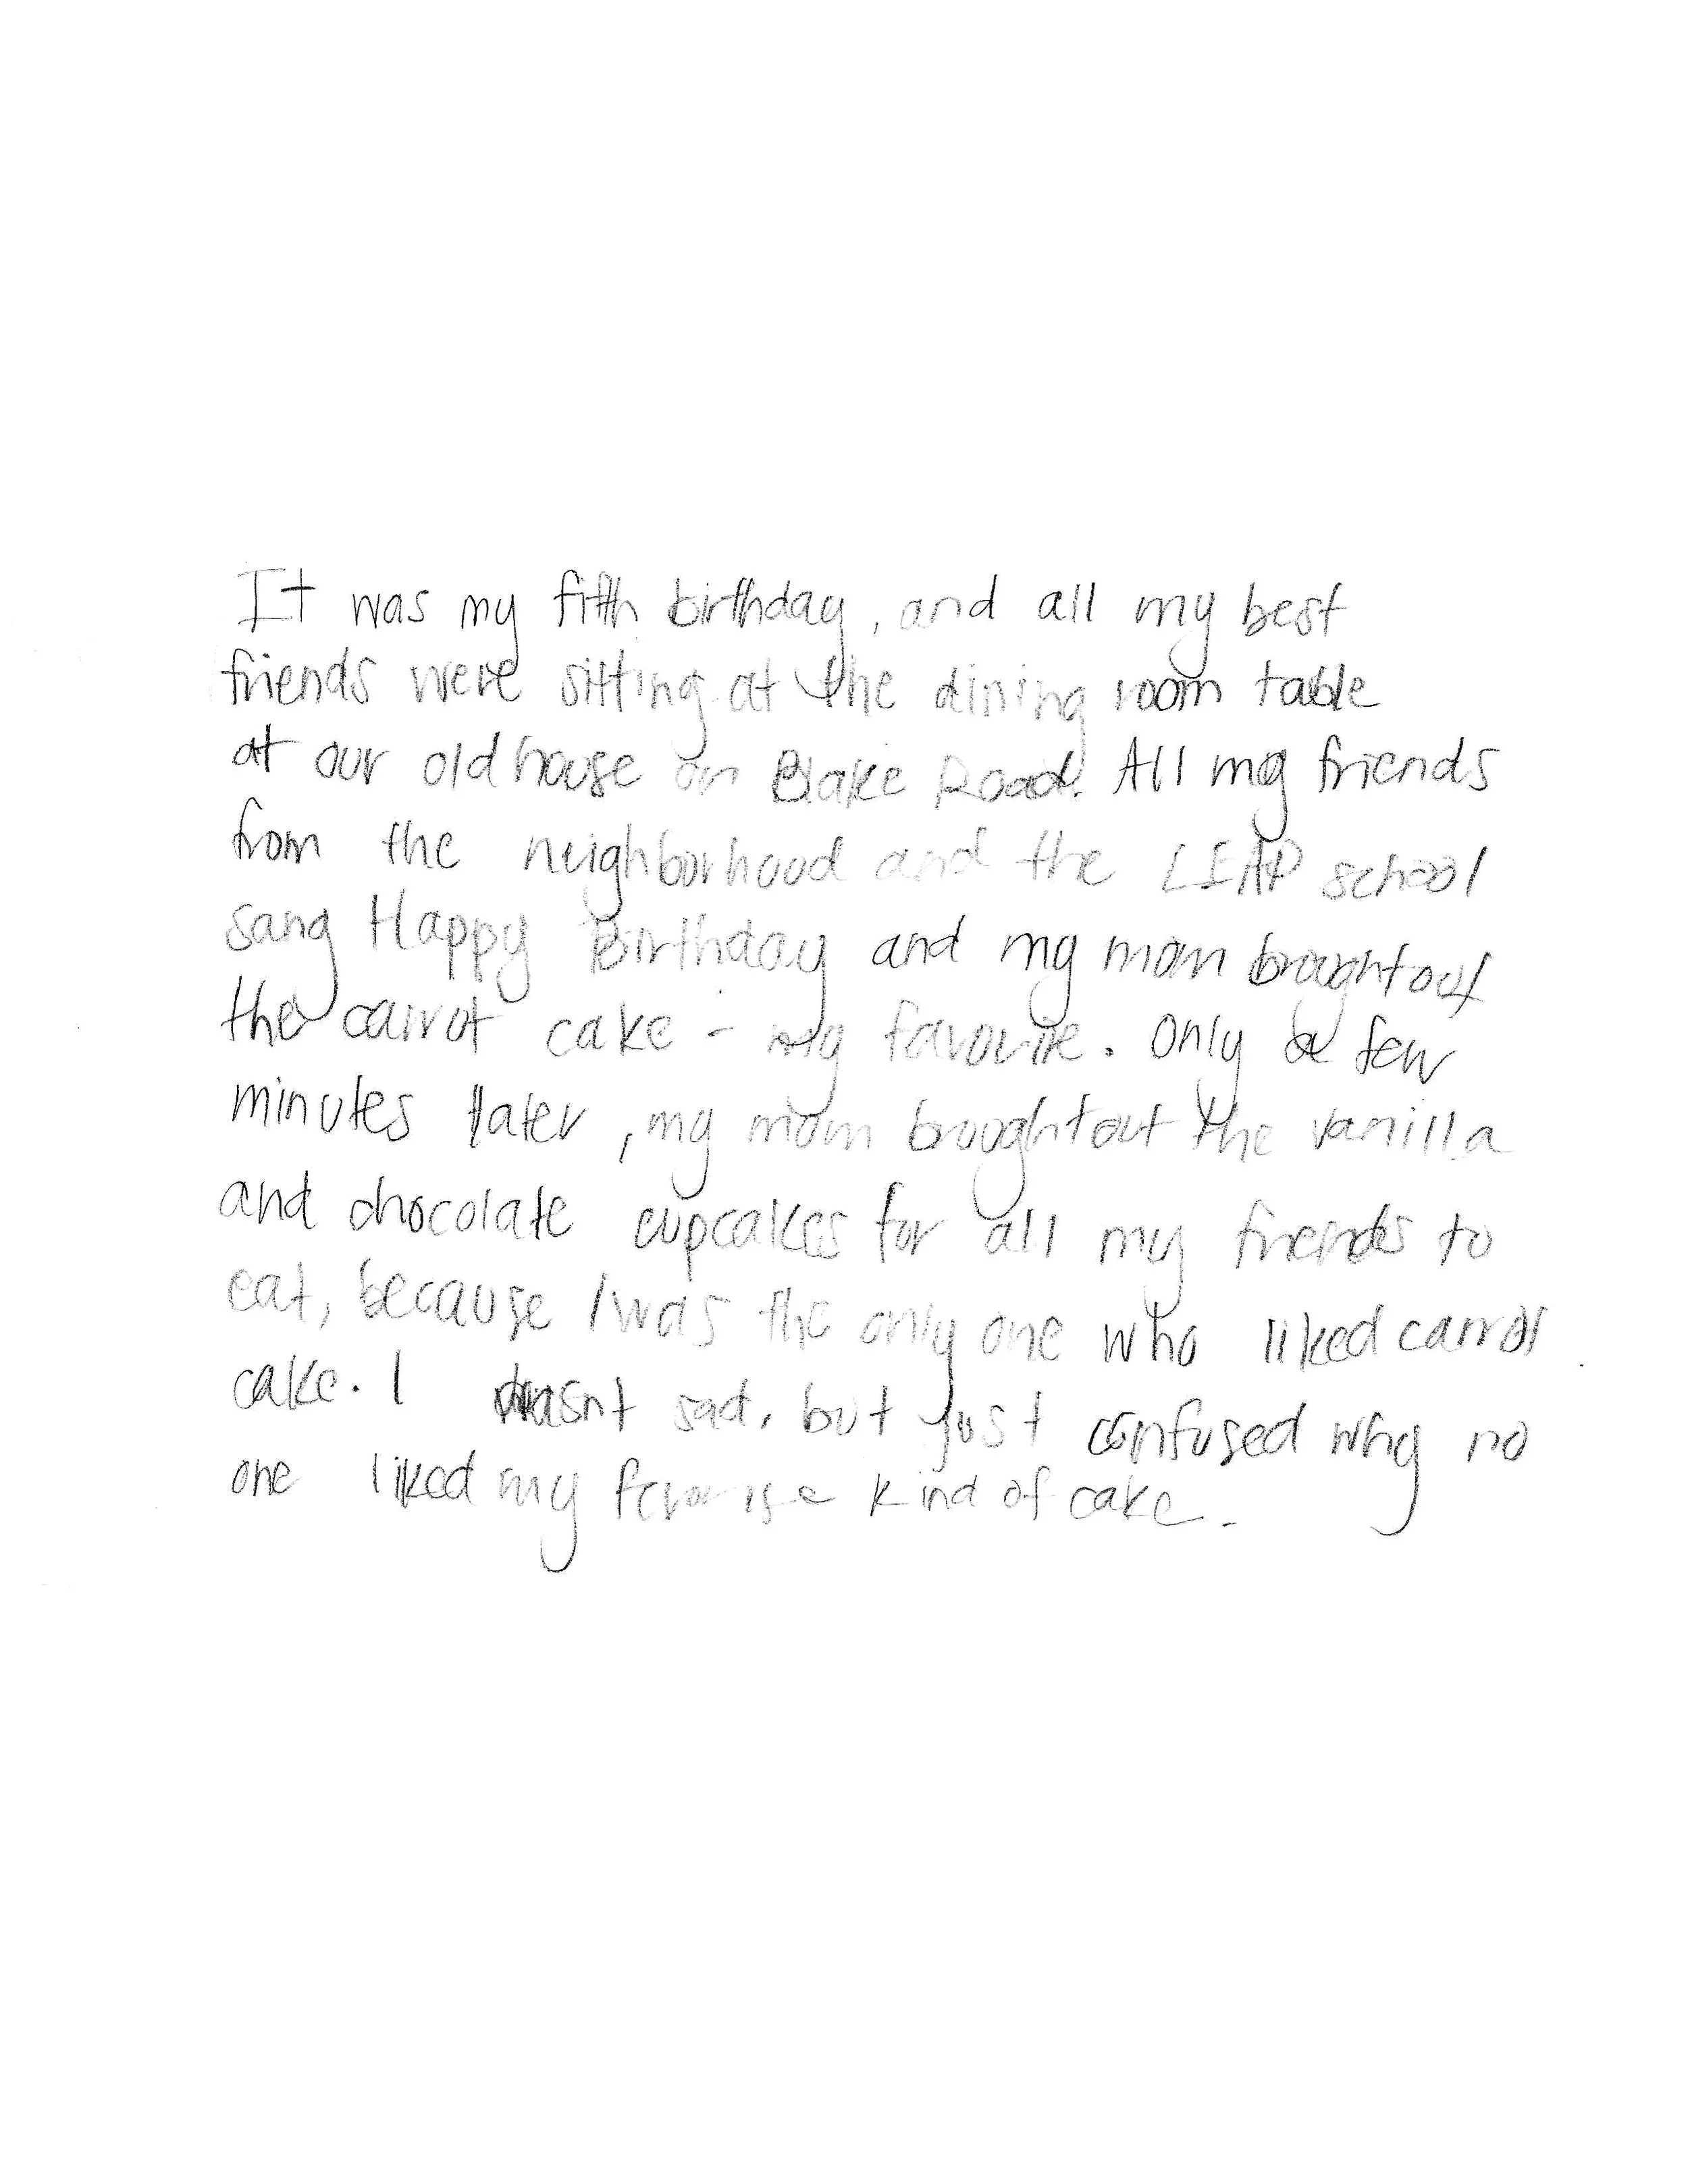 It was my fifth birthday, and all my best
friends were sitting at the dining room table
at our old house on Blake Road. All my friends
from the neighborhood and the LEAP school
sang Happy Birthday and my mom brought out
the carrot cake - my favorite. Only a few
minutes later, my mom brought out the vanilla
and chocolate cupcakes for all my friends to
eat, because I was the only one who liked carrot
cake. I wasnt sad, but just confused why no
one liked my favorite kind of cake.